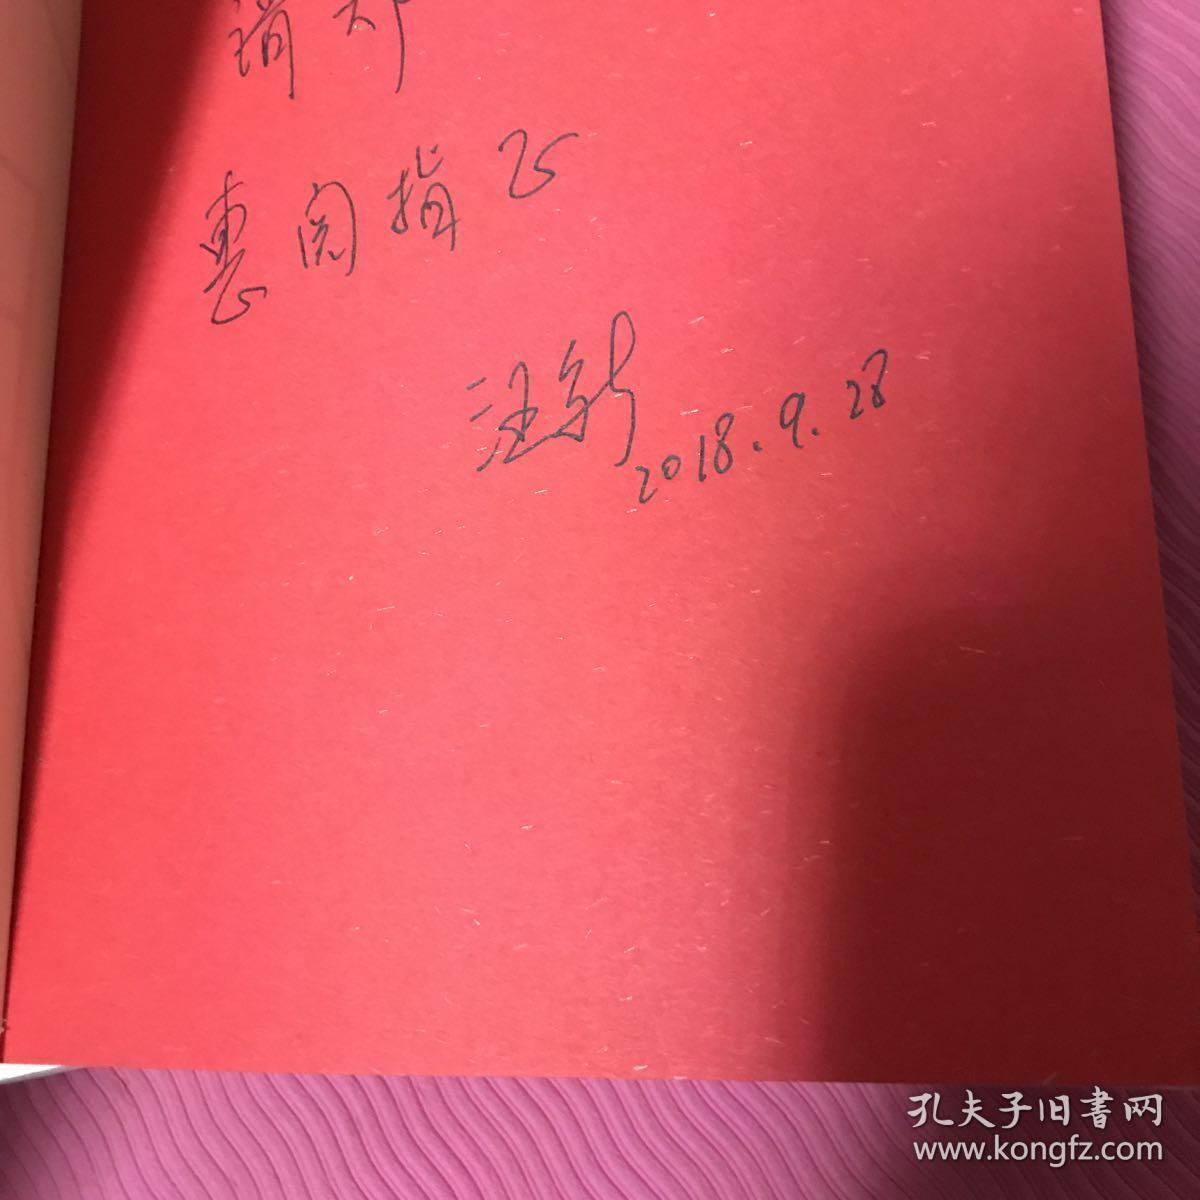 惠阅指正
汪新
2018.9.28
孔夫子旧書网
www.kongfz.com